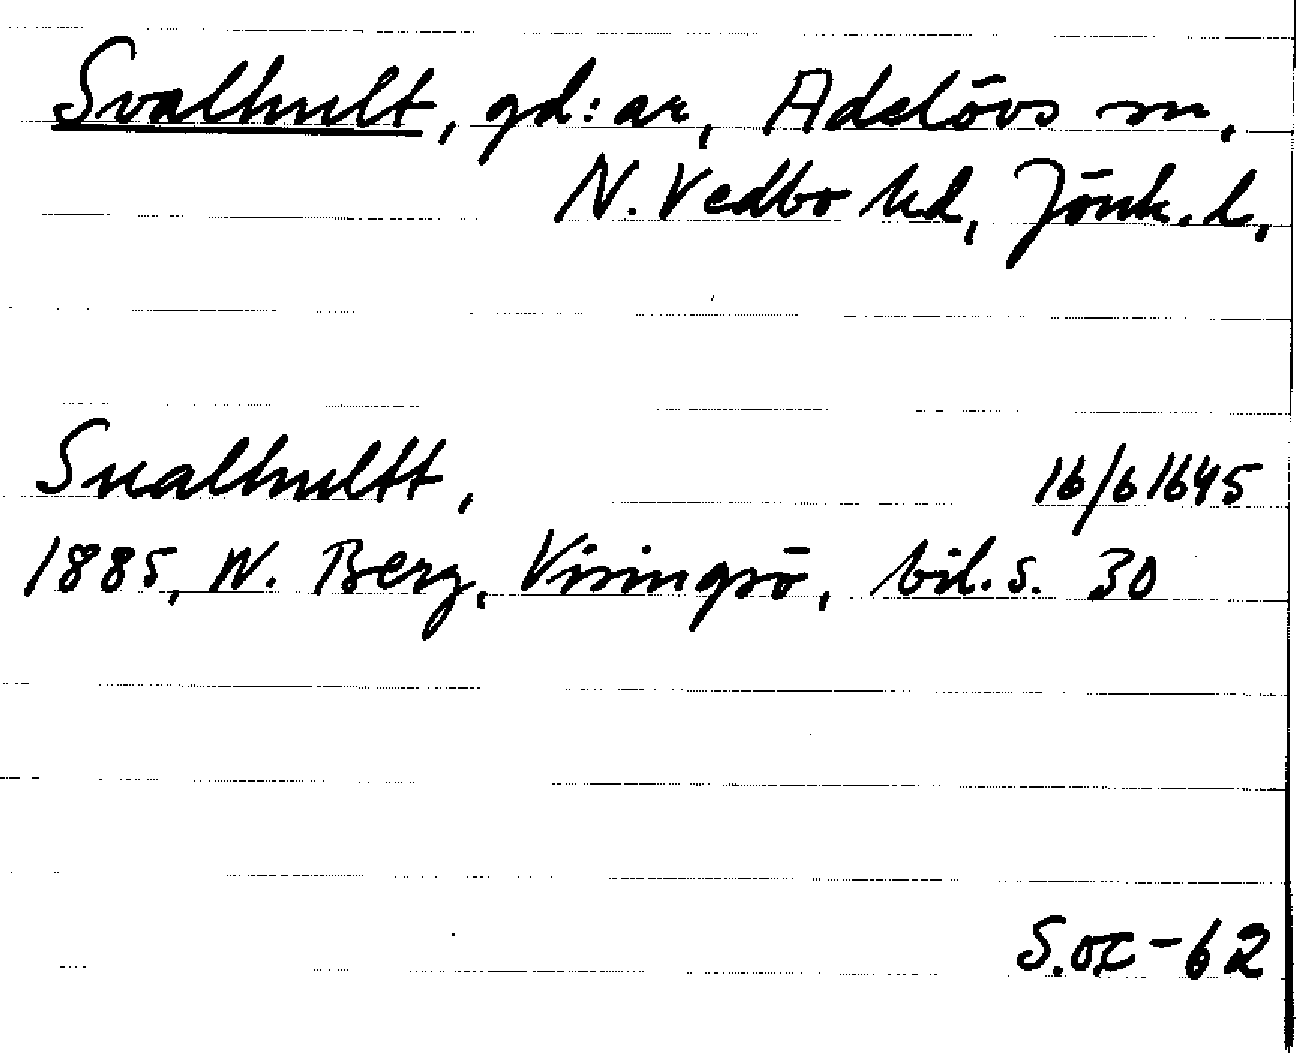 Svalhult, gd:ar, Adelövs sn,
N. Vedbo hd, Jönk. l,
Sualhultt, 16/6 1645
1885, W. Berg, Visingsö, bil. s. 30
S.OC-62